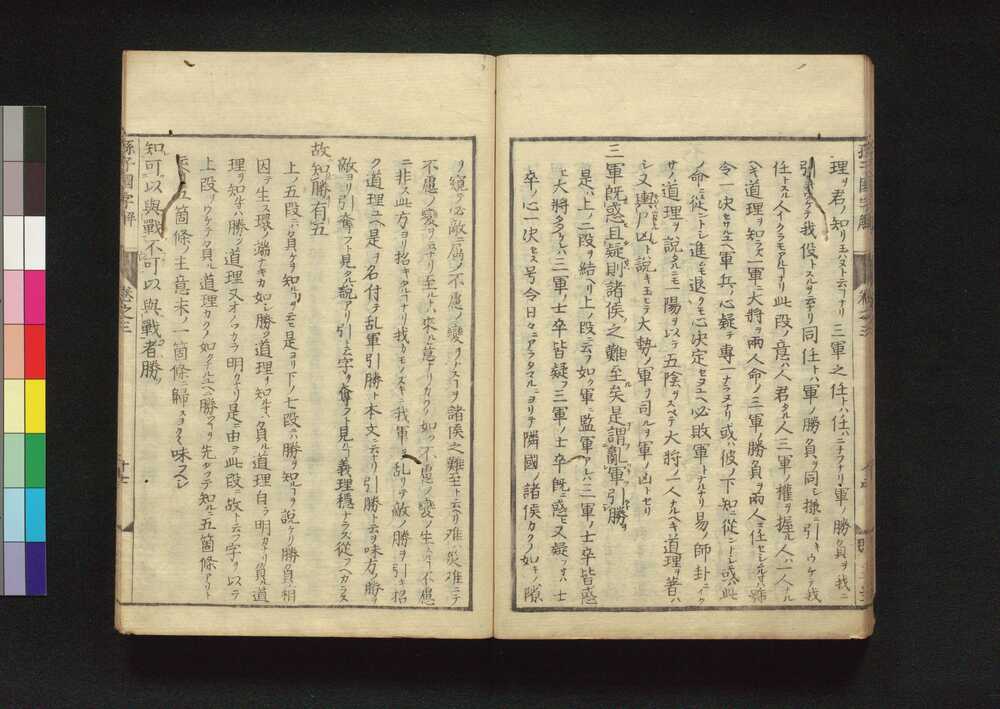 理ヲ君ノ知リ玉ハヌト云コトナリ三軍之任トハ任ハニナフナリ軍ノ勝負ヲ我ニ
引ウケテ我役トスルヲ云ナリ同任トハ軍ノ勝負ヲ同シ様ニ引キウケテ我
任トスル人イクラモアルコトナリ此段ノ意ハ人君タル人三軍ノ權ヲ握ル人ハ一人ナル
ヘキ道理ヲ知ラズ一軍ニ大將ヲ兩人命ノ三軍ノ勝負ヲ兩人ニ任セシムル寸ハ號
令一決セサルユヘ軍兵ノ心疑テ專一ナラヌナリ或ハ彼ノ下知ニ從ントシ或ハ此
ノ命ニ從ントシ進ニモ退クニモ心決定セヌユヘ必敗軍トナルナリ易ノ師卦ニイク
サノ道理ヲ說タルニモ一陽ヲ以テ五陰ヲスベテ大將ノ一人ナルヘキ道理ヲ著ハ
シ又輿尸凶ト說キ玉ヒテ大勢ノ軍ヲ司ルヲ軍ノ凶トセリ
三軍既惑且疑則諸侯之難至矣是謂亂軍引勝
是ハ上ノ二段ヲ結ベリ上ノ段ニ云フ如ク軍ニ監軍アレハ三軍ノ士卒皆惑
ヒ大將多ケレハ三軍ノ士卒皆疑フ三軍ノ士卒既ニ惑ヒ又疑フ寸ハ士
卒ノ心一決セス号令日々ニアラタマルニヨリテ隣國ノ諸侯カクノ如キノ隙
ヲ窺ヒ必敵ニ屬ノ不慮ノ變ヲナスコヲ諸侯之難至トハ云ヘリ難ハ災難ニテ
不慮ノ變ヲ云ナリ至ルトハ來ル意ナリカクノ如ク不慮ノ變ノ生スルハ不慮
ニ非ス此方ヨリ招キタルコナリ我カモノスキニ我軍ヲ乱リテ敵ノ勝ヲ引キ招
ク道理ユヘ是ヲ名付テ乱軍引勝ト本文ニ云リ引勝ト云ヲ味方ノ勝ヲ
敵ヨリ引奪フト見タル說アリ引ト云字ヲ奪フト見ル義理穩ナラス從フヘカラス
故知勝有五
上ノ五段ハ負ケヲ知ルコヲ云ヒ是ヨリ下ノ七段ニハ勝ヲ知ルコヲ說ケリ勝負ハ相
因テ生ス環ノ端ナキカ如シ勝ノ道理ヲ知ルハ負ル道理白ラ明カナリ負ル道
理ヲ知レハ勝ノ道理又オノツカラ明ケシ是ニ由テ此段ニ故ト云フ字ヲ以テ
上段ヲウケテ負ル道理カクノ如クナルユヘニ勝コヲ先タツテ知ルニ五箇條アリト
云ヘリ五箇條ノ主意末ノ一箇條ニ歸スヨク〱味フヘシ
知可以與戰不可以與戰者勝
孫子國字解
卷之三
十七